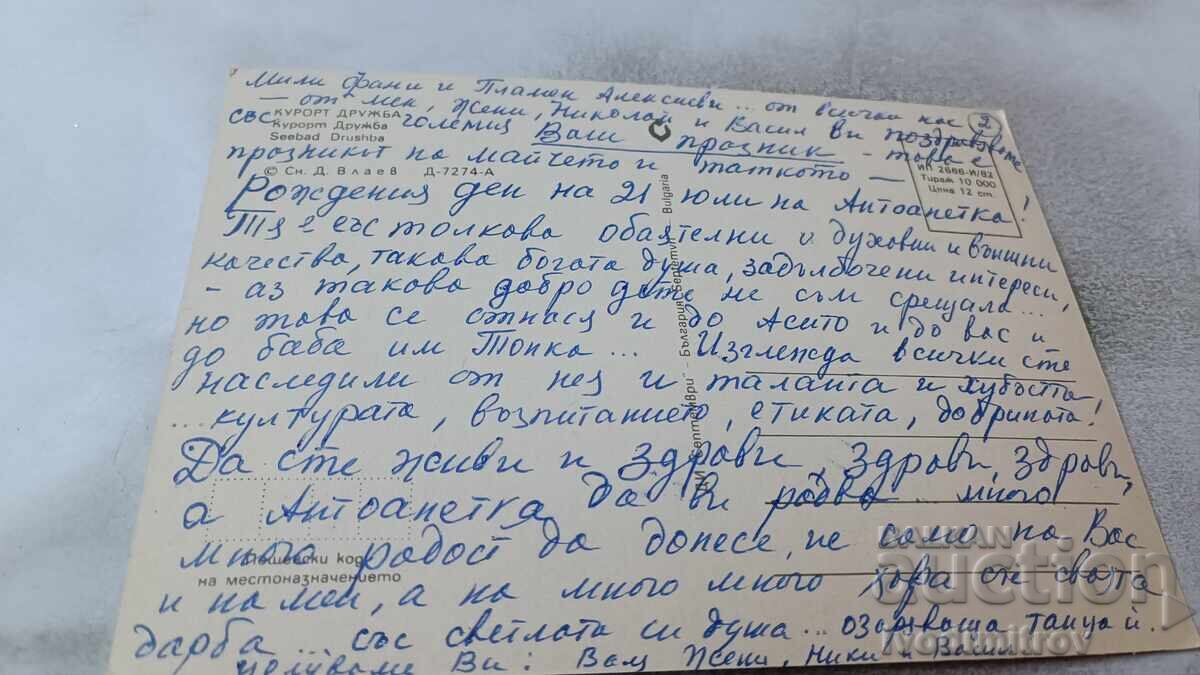 Мили Фани и Пламен Алексиеви... от всички нас 2
— от мен, Жени, Николай и Васил ви поздравяваме
КУРОРТ ДРУЖБА
Курорт Дружба
Seebad Drushba
със големия Ваш празник – това е
празникът на майчето и таткото —
© Сн. Д. Влаев Д-7274-А
ИП 2666-И/82
Тираж 10 000
Цена 12 ст.
Рождения ден на 21 юли на Антоанетка!
Тя е със толкова обаятелни и духовни и външни
качества, такава богата душа, задълбочени интереси,
– аз такова добро дете не съм срещала...
но това се отнася и до Асито и до вас и
до баба им Топка... Изглежда всички сте
наследили от нея и таланта и хубостта,
...културата, възпитанието, етиката, добрината!
Да сте живи и здрави, здрави, здрави,
а Антоанетка да ви радва.. много
много радост да донесе, не само на Вас
Пощенски код
на местоназначението
и на мен, а на много много хора от своята
дарба... със светлата си душа... озаряваща танца ѝ.
Целуваме Ви: Ваш Жени, Ники и Васил
ДИ "Септември" – България "Septemvri" – Bulgaria
БАЛКАН
auction
ivodimitrov